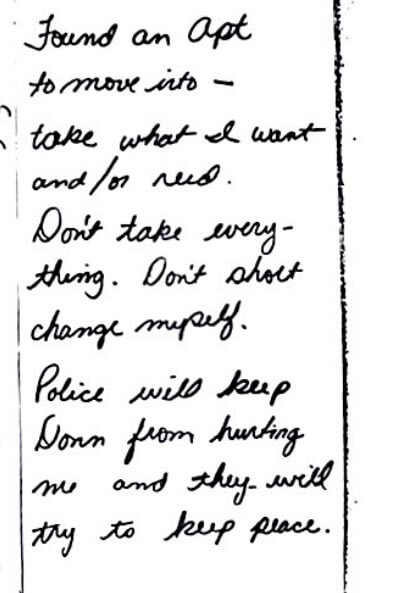 Found an Apt
to move into —
take what I want
and/or need.
Don't take every-
thing. Don't short
change myself.
Police will keep
Donn from hurting
me and they will
try to keep peace.